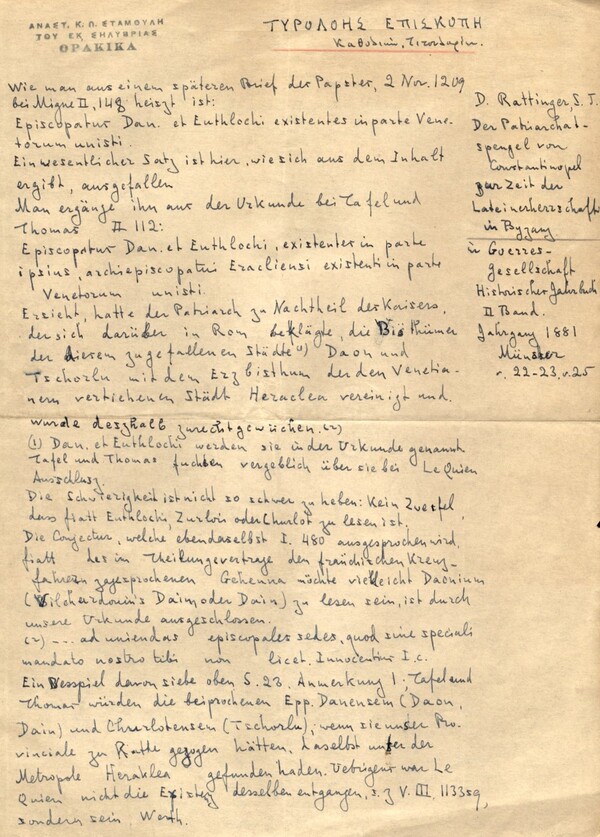 ΑΝΑΣΤ. Κ. Π. ΣΤΑΜΟΥΛΗ
ΤΟΥ ΕΚ ΣΗΛΥΒΡΙΑΣ
ΘΡΑΚΙΚΑ
ΤΥΡΟΛΟΗΣ ΕΠΙΣΚΟΠΗ
Wie man aus einem späteren Brief der Papster, 2 Nov. 1209
bei Migne II, 148 heiszt ist:
Episcopatur Dan. et Euthlochi existentes in parte Vene-
torum unisti.
Ein wesentlicher Satz ist hier, wie sich aus dem Inhalt
ergibt, ausgefallen
Man ergänze ihn aus der Urkunde bei Tafel und
Thomas II 112:
Episcopatur Dan. et Euthlochi, existenter in parte
ipsius, archiepiscopatui Eracliensi existenti in parte
Venetorum unisti.
Erzicht, hatte der Patriarch zu Nachtheil des Kaisers,
der sich darüber in Rom beklagte, die Bisthümer
der diesem zugefallenen Städte (1) Daon und
Tschorlu mit dem Erzbisthum der den Venetia-
nern verliehenen Städt Heraclea vereinigt und.
wurde deszhalb zurechtgewiichen. (2)
(1) Dan. et Euthlochi werden sie in der Urkunde genannt
Tafel und Thomas fuchten vergeblich über sie bei Le Quien
Ausschlusz.
Die Schwierigkeit ist nicht so schwer zu heben: Kein Zweifel,
dass fiatt Euthlochi, Zurloin oder Churlot zu lesen ist.
Die Conjectur, welche ebendaselbst I. 480 ausgesprochen wird,
fiatt des im Theilungsvertrage den fränchischen Kreuz-
fahrern zugesprochenen Gehenna möchte vielleicht Daonium
(Vilehardouin's Daim oder Dain) zu lesen sein, ist durch
unsere Urkunde ausgeschlossen.
(2) -... ad uniendas episcopales sedes, quod sine speciali
mandato nostro tibi non licet. Innocentius I.c.
Ein Besspiel davon siebe oben S. 23. Anmerkung 1; Tafel und
Thomas würden die besprochenen Epp. Danensem (Daon,
Dain) und Churlotensem (Tschorlu), wenn sie unser Pro-
vinciale zu Rathe gezogen hätten, daselbst unter der
Metropole Heraklea gefunden haden. Uebrigens war Le
Quien nicht die Existenz desselben entgangen, s. z V. III, 1133 sq,
sondern sein Werth.
D. Rattinger, S. J.
Der Patriarchat-
spengel von
Constantinopel
zur Zeit der
Lateinerherrschaft
in Byzanz
in Guerres-
gesellschaft
Historischer Jahrbuch
II Band.
Jahrgang 1881
Münster
s. 22-23, s. 25